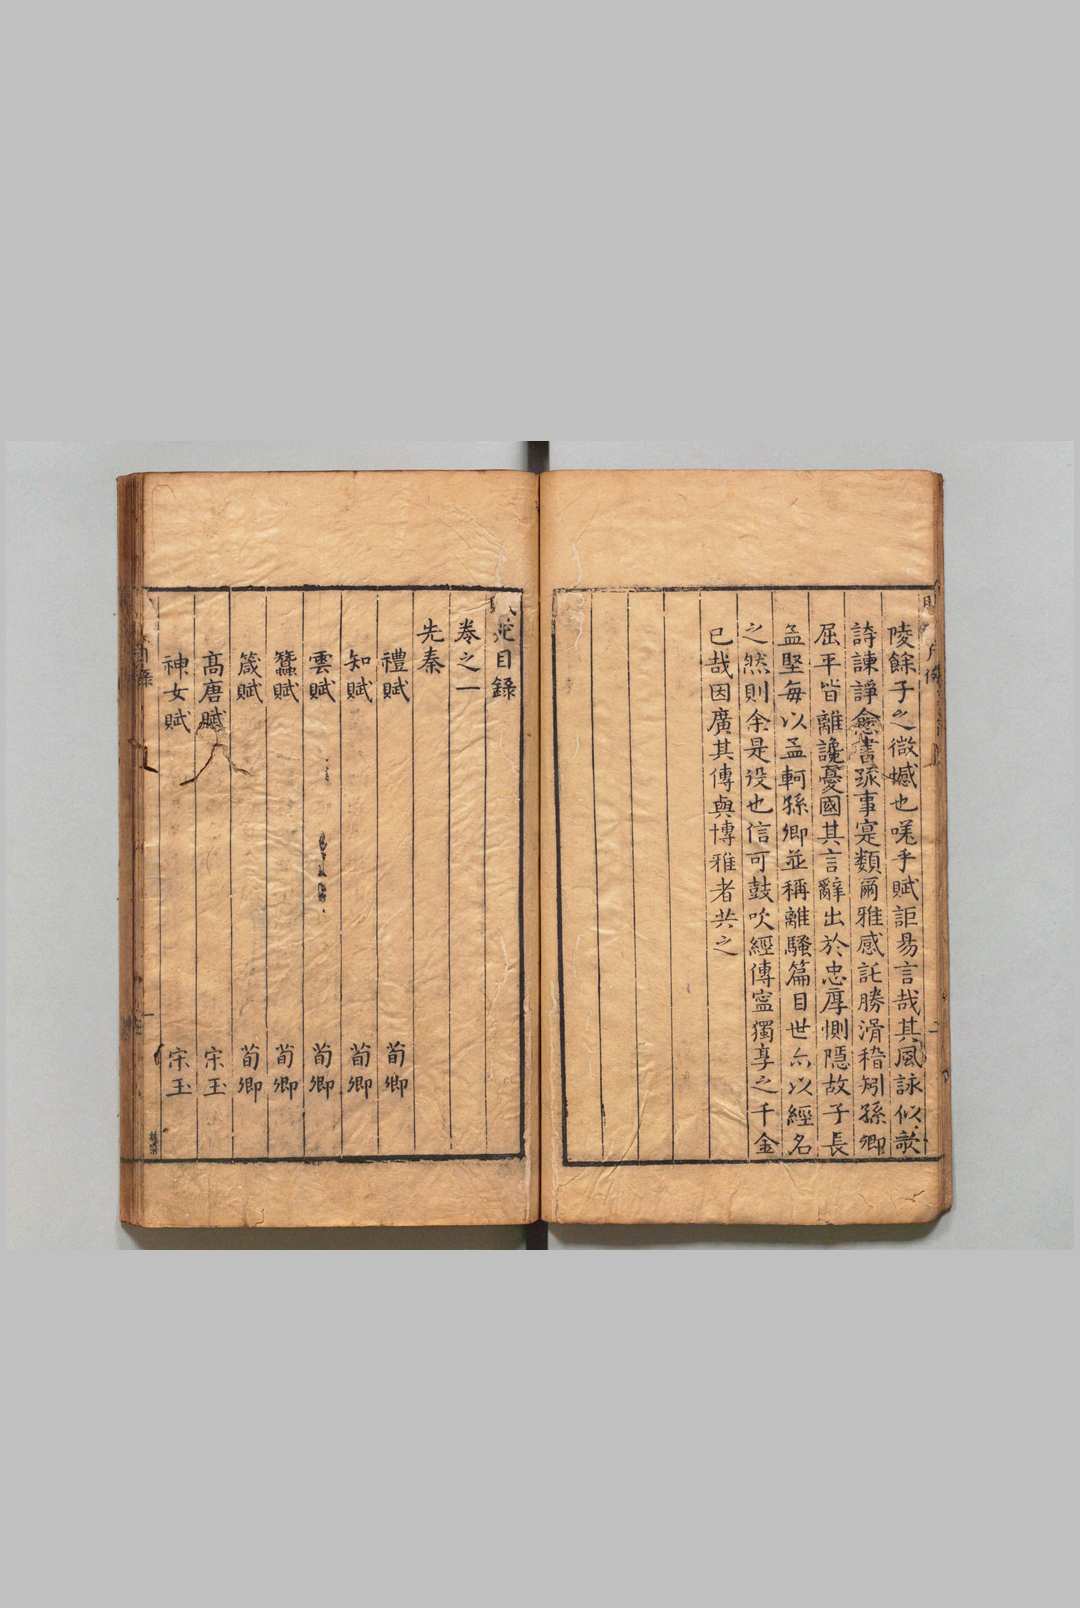 陵餘子之微憾也嗟乎賦詎易言哉其風詠似歌
詩諫諍愈書疏事寔類爾雅感託勝滑稽矧孫卿
屈平皆離讒憂國其言辭出於忠厚惻隠故子長
孟堅每以孟軻孫卿並稱離騷篇目世亦以經名
之然則余是役也信可鼓吹經傳寍獨享之千金
已哉因廣其傳與博雅者共之
目錄
卷之一
先秦
禮賦 荀卿
知賦 荀卿
雲賦 荀卿
蠶賦 荀卿
箴賦 荀卿
高唐賦 宋玉
神女賦 宋玉